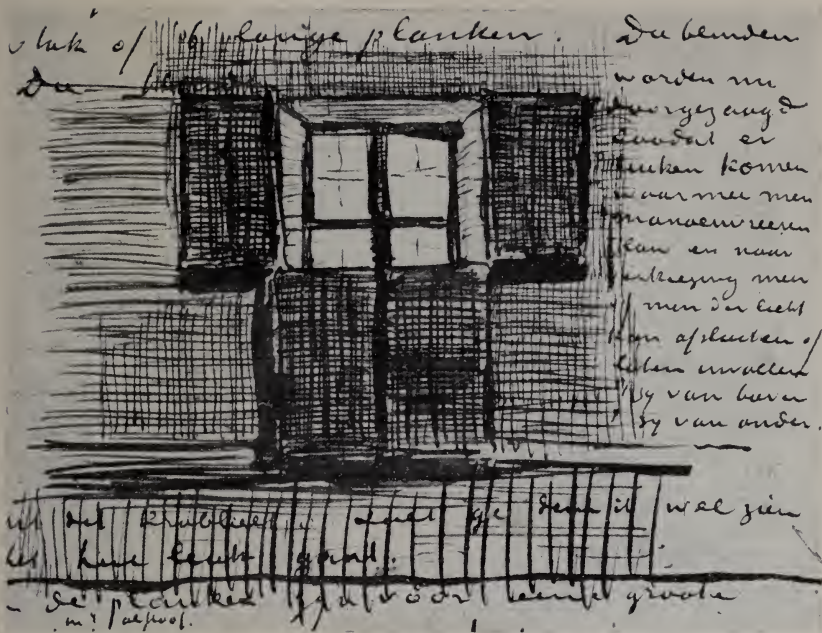 vlak of op lange planken.
De blinden
De blinden
worden nu
doorgezaagd
zoodat er
luiken komen
waarmee men
manoeuvreeren
kan en naar
verkiezing men
men der licht
kan afsluiten of
laten invallen
'tzy van boven
'tzy van onder.
uit dit krabbeltje zult ge denk ik wel zien
het heel leuk gaat.
de planken zyn voor eene groote